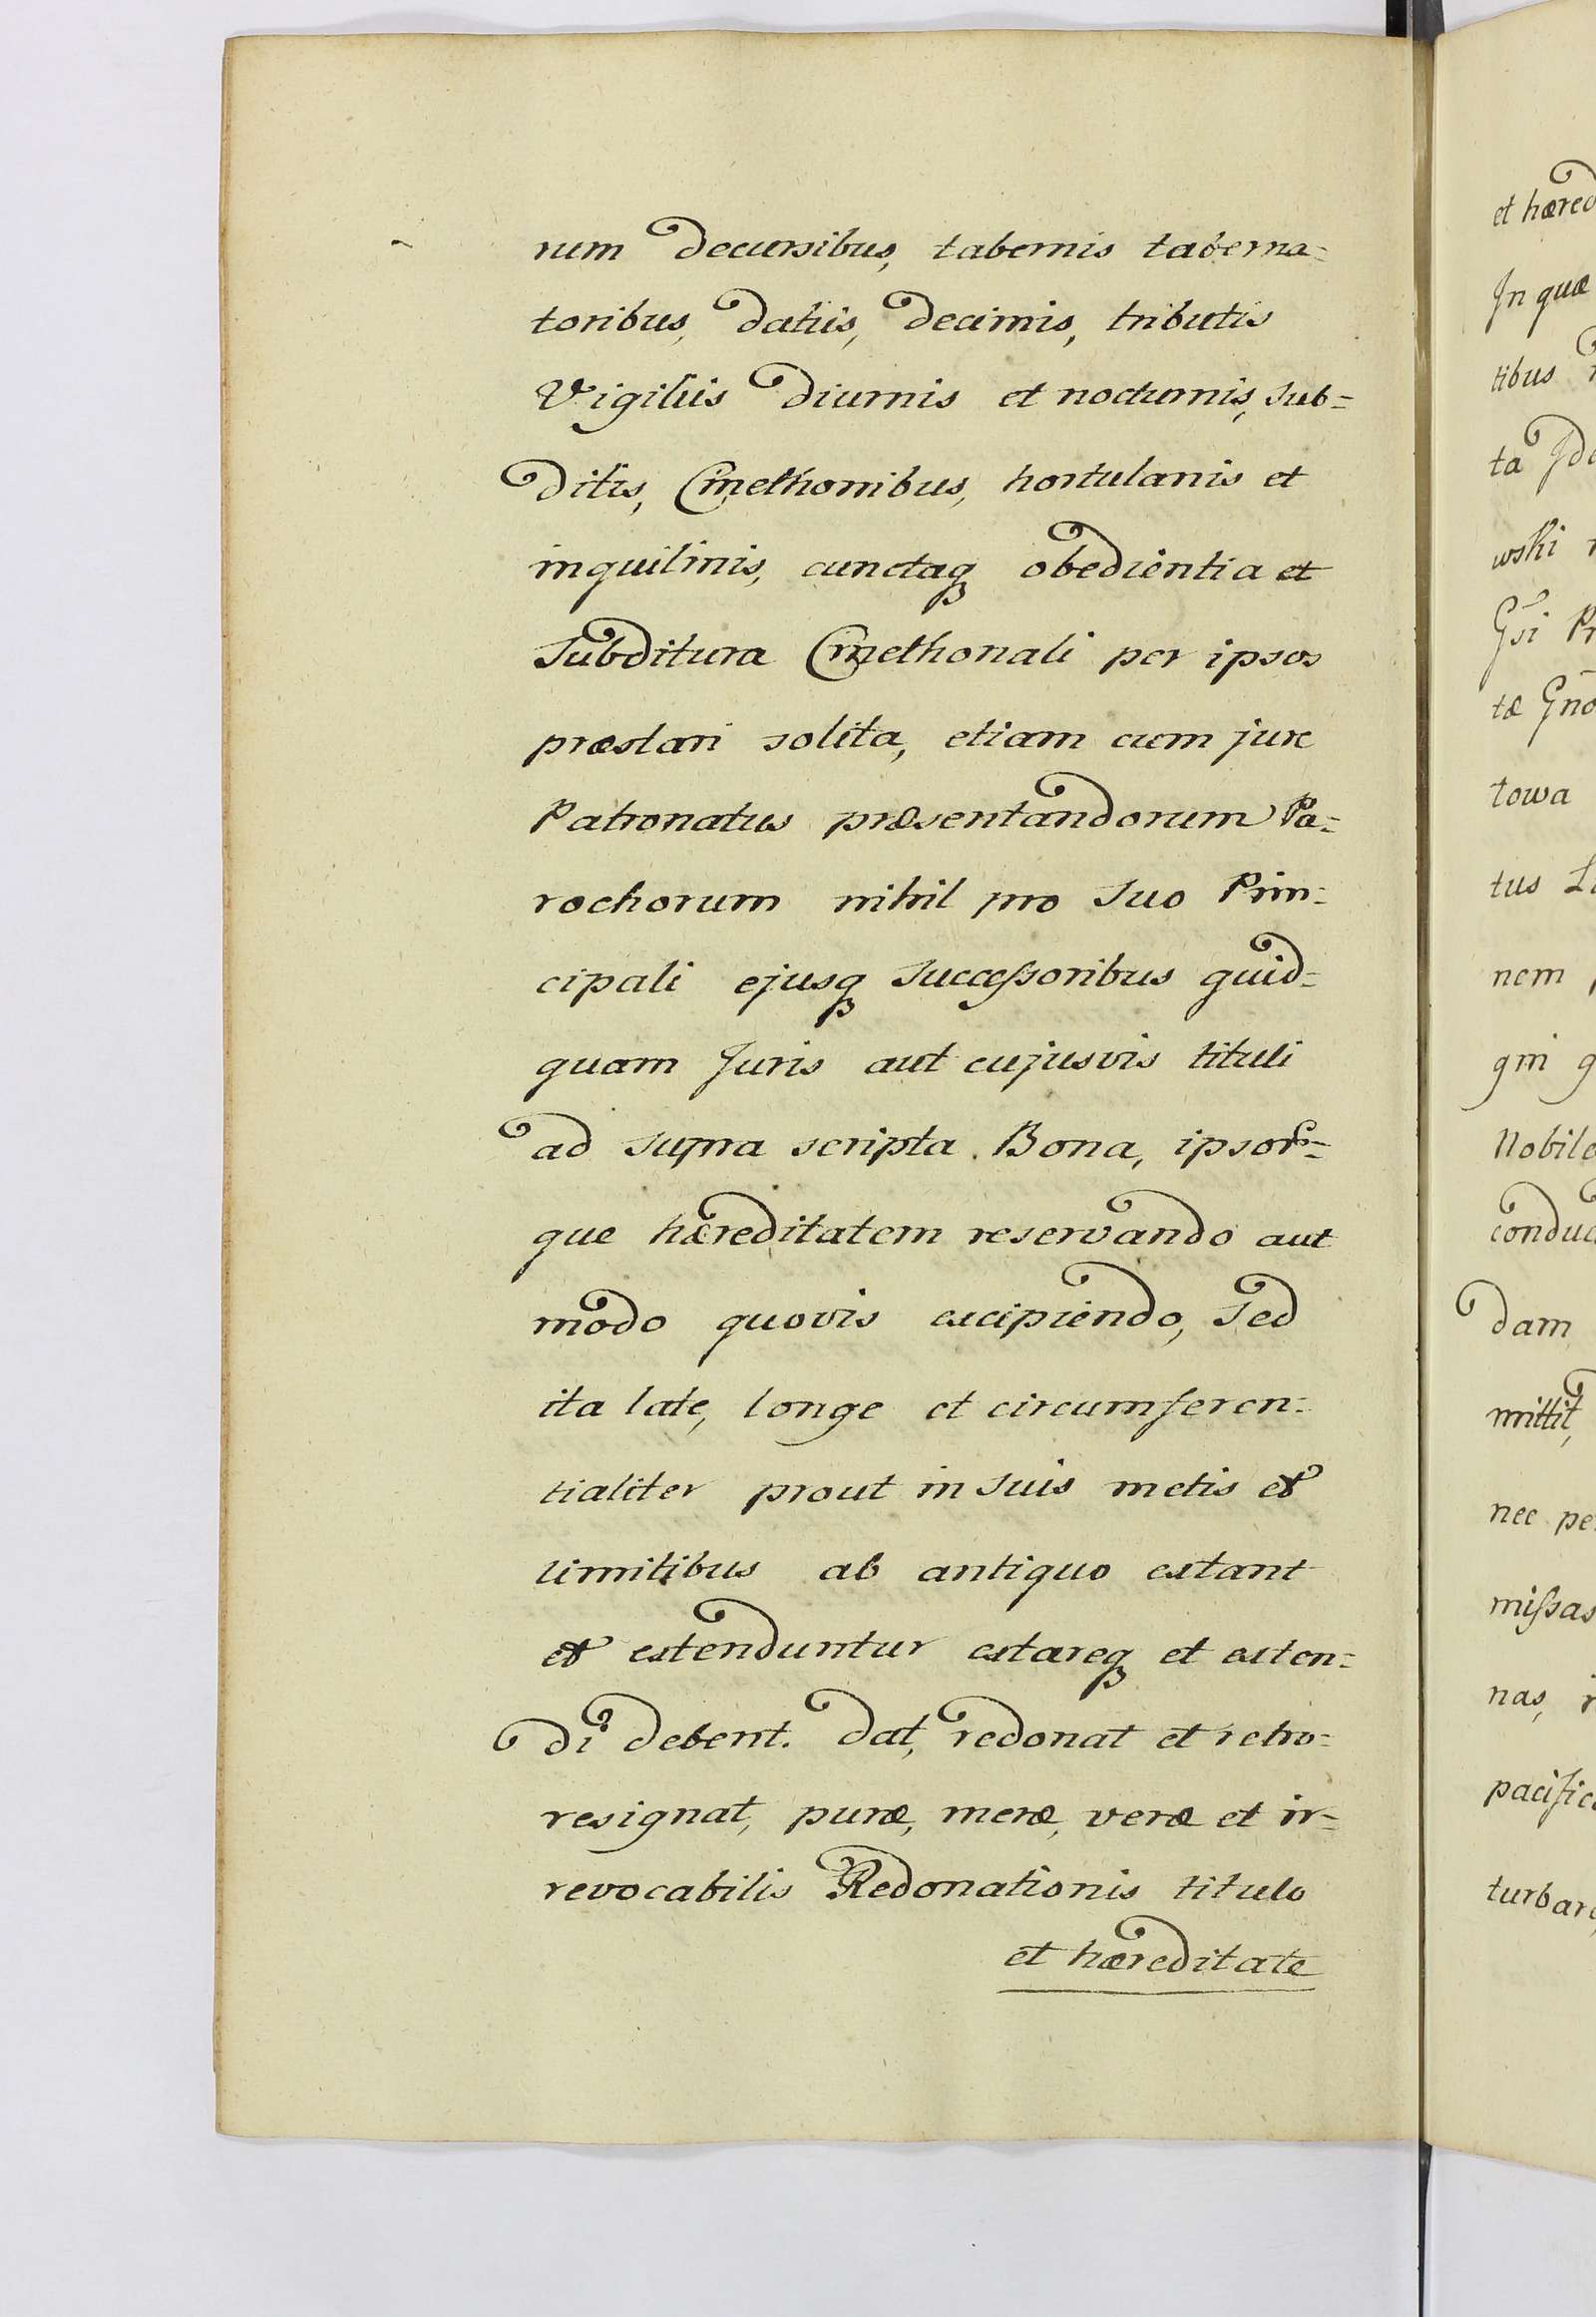 rum decursibus, tabernis taberna=
toribus, datiis, decimis, tributis
Vigiliis diurnis et nocturnis, sub=
ditis, Cmethonibus, hortulanis et
inquilinis, cunctaq obedientia et
subditura Cmethonali per ipsos
præstari solita, etiam cum jure
Patronatus præsentandorum Pa=
rochorum nihil pro suo Prin=
cipali ejusq successoribus quid=
quam Juris aut cujusvis tituli
ad supra scripta Bona, ipsor=
que hæreditatem reservando aut
modo quovis excipiendo, sed
ita late, longe et circumferen=
tialiter prout in suis metis et
limitibus ab antiquo extant
et extenduntur extareq et exten=
di debent. dat, redonat et retro=
resignat, puræ, meræ, veræ et ir=
revocabilis Redonationis titulo
et hæreditate
et hæred
In quæ
tibus
ta
wski
Gsi Pr
tæ Gno
towa
tus
nem
gni g
Nobile
conduc
dam
mittit,
nec pe
missas
nas,
pacific
turbar